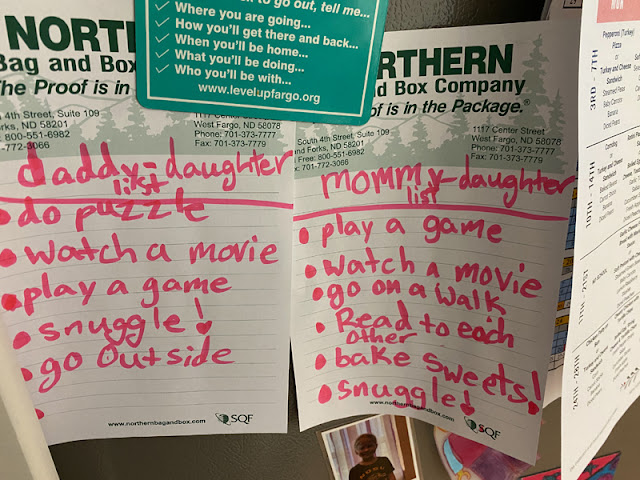 to go out, tell me...
Where you are going...
How you'll get there and back...
When you'll be home...
What you'll be doing...
Who you'll be with...
www.levelupfargo.org
NORT
Bag and Box
The Proof is in
4th Street, Suite 109
Forks, ND 58201
800-551-6982
-772-3066
1117 Center Street
West Fargo, ND 58078
Phone: 701-373-7777
Fax: 701-373-7779
daddy-daughter
list
do puzzle
watch a movie
play a game
snuggle!
go outside
www.northernbagandbox.com
SQF
RTHERN
nd Box Company
of is in the Package.®
South 4th Street, Suite 109
and Forks, ND 58201
Free: 800-551-6982
1117 Center Street
West Fargo, ND 58078
Phone: 701-373-7777
Fax: 701-373-7779
mommy-daughter
list
play a game
watch a movie
go on a walk
Read to each
other
bake sweets!
snuggle!
www.northernbagandbox.com
SQF
3RD - 7TH
Pepperoni (Turkey)
Pizza
or
Turkey and Cheese
Sandwich
Steamed Peas
Baby Carrots
Banana
Diced Pears
10TH - 14TH
Corndog
or
Turkey and Cheese
Sandwich
17TH - 21ST
24TH - 28TH